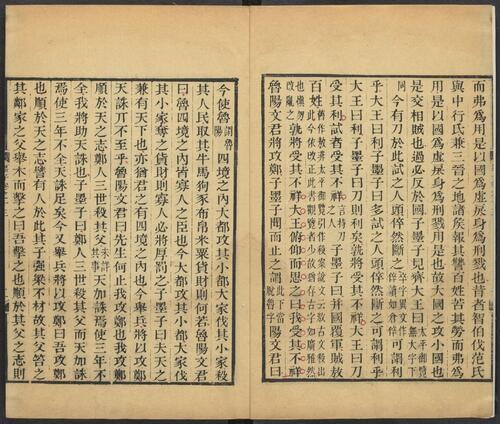 而弗為用是以國為虛戾身為刑戮也昔者智伯伐范氏
與中行氏兼三晉之地諸矦報其讐百姓苦其勞而弗為
用是以國為虛戾身為刑戮用是也故大國之攻小國也
是交相賊也過必反於國子墨子見齊大王曰太平御覽無大字下同
今有刀於此試之人頭倅然斷之可謂利
乎大王曰利子墨子曰多試之人頭倅然斷之可謂利乎
大王曰利子墨子曰刀則利矣孰將受其不祥大王曰刀
受其利試者受其不祥言持刀之人子墨子曰并國覆軍賊敖
百姓
孰將受其不祥大王俯仰而思之曰我受其不祥
魯陽文君將攻鄭子墨子聞而止之謂此下當脫魯字陽文君曰
今使魯謂魯陽四境之內大都攻其小都大家伐其小家殺
其人民取其牛馬狗豕布帛米粟貨財則何若魯陽文君
曰魯四境之內皆寡人之臣也今大都攻其小都大家伐
其小家奪之貨財則寡人必將厚罰之子墨子曰夫天之
兼有天下也亦猶君之有四境之內也今舉兵將以攻鄭
天誅亓不至乎魯陽文君曰先生何止我攻鄭也我攻鄭
順於天之志鄭人三世殺其父未詳其事天加誅焉使三年不
全我將助天誅也子墨子曰鄭人三世殺其父而天加誅
焉使三年不全天誅足矣今又舉兵將以攻鄭曰吾攻鄭
也順於天之志譬有人於此其子強梁不材故其父笞之
其鄰家之父舉木而擊之曰吾擊之也順於其父之志則